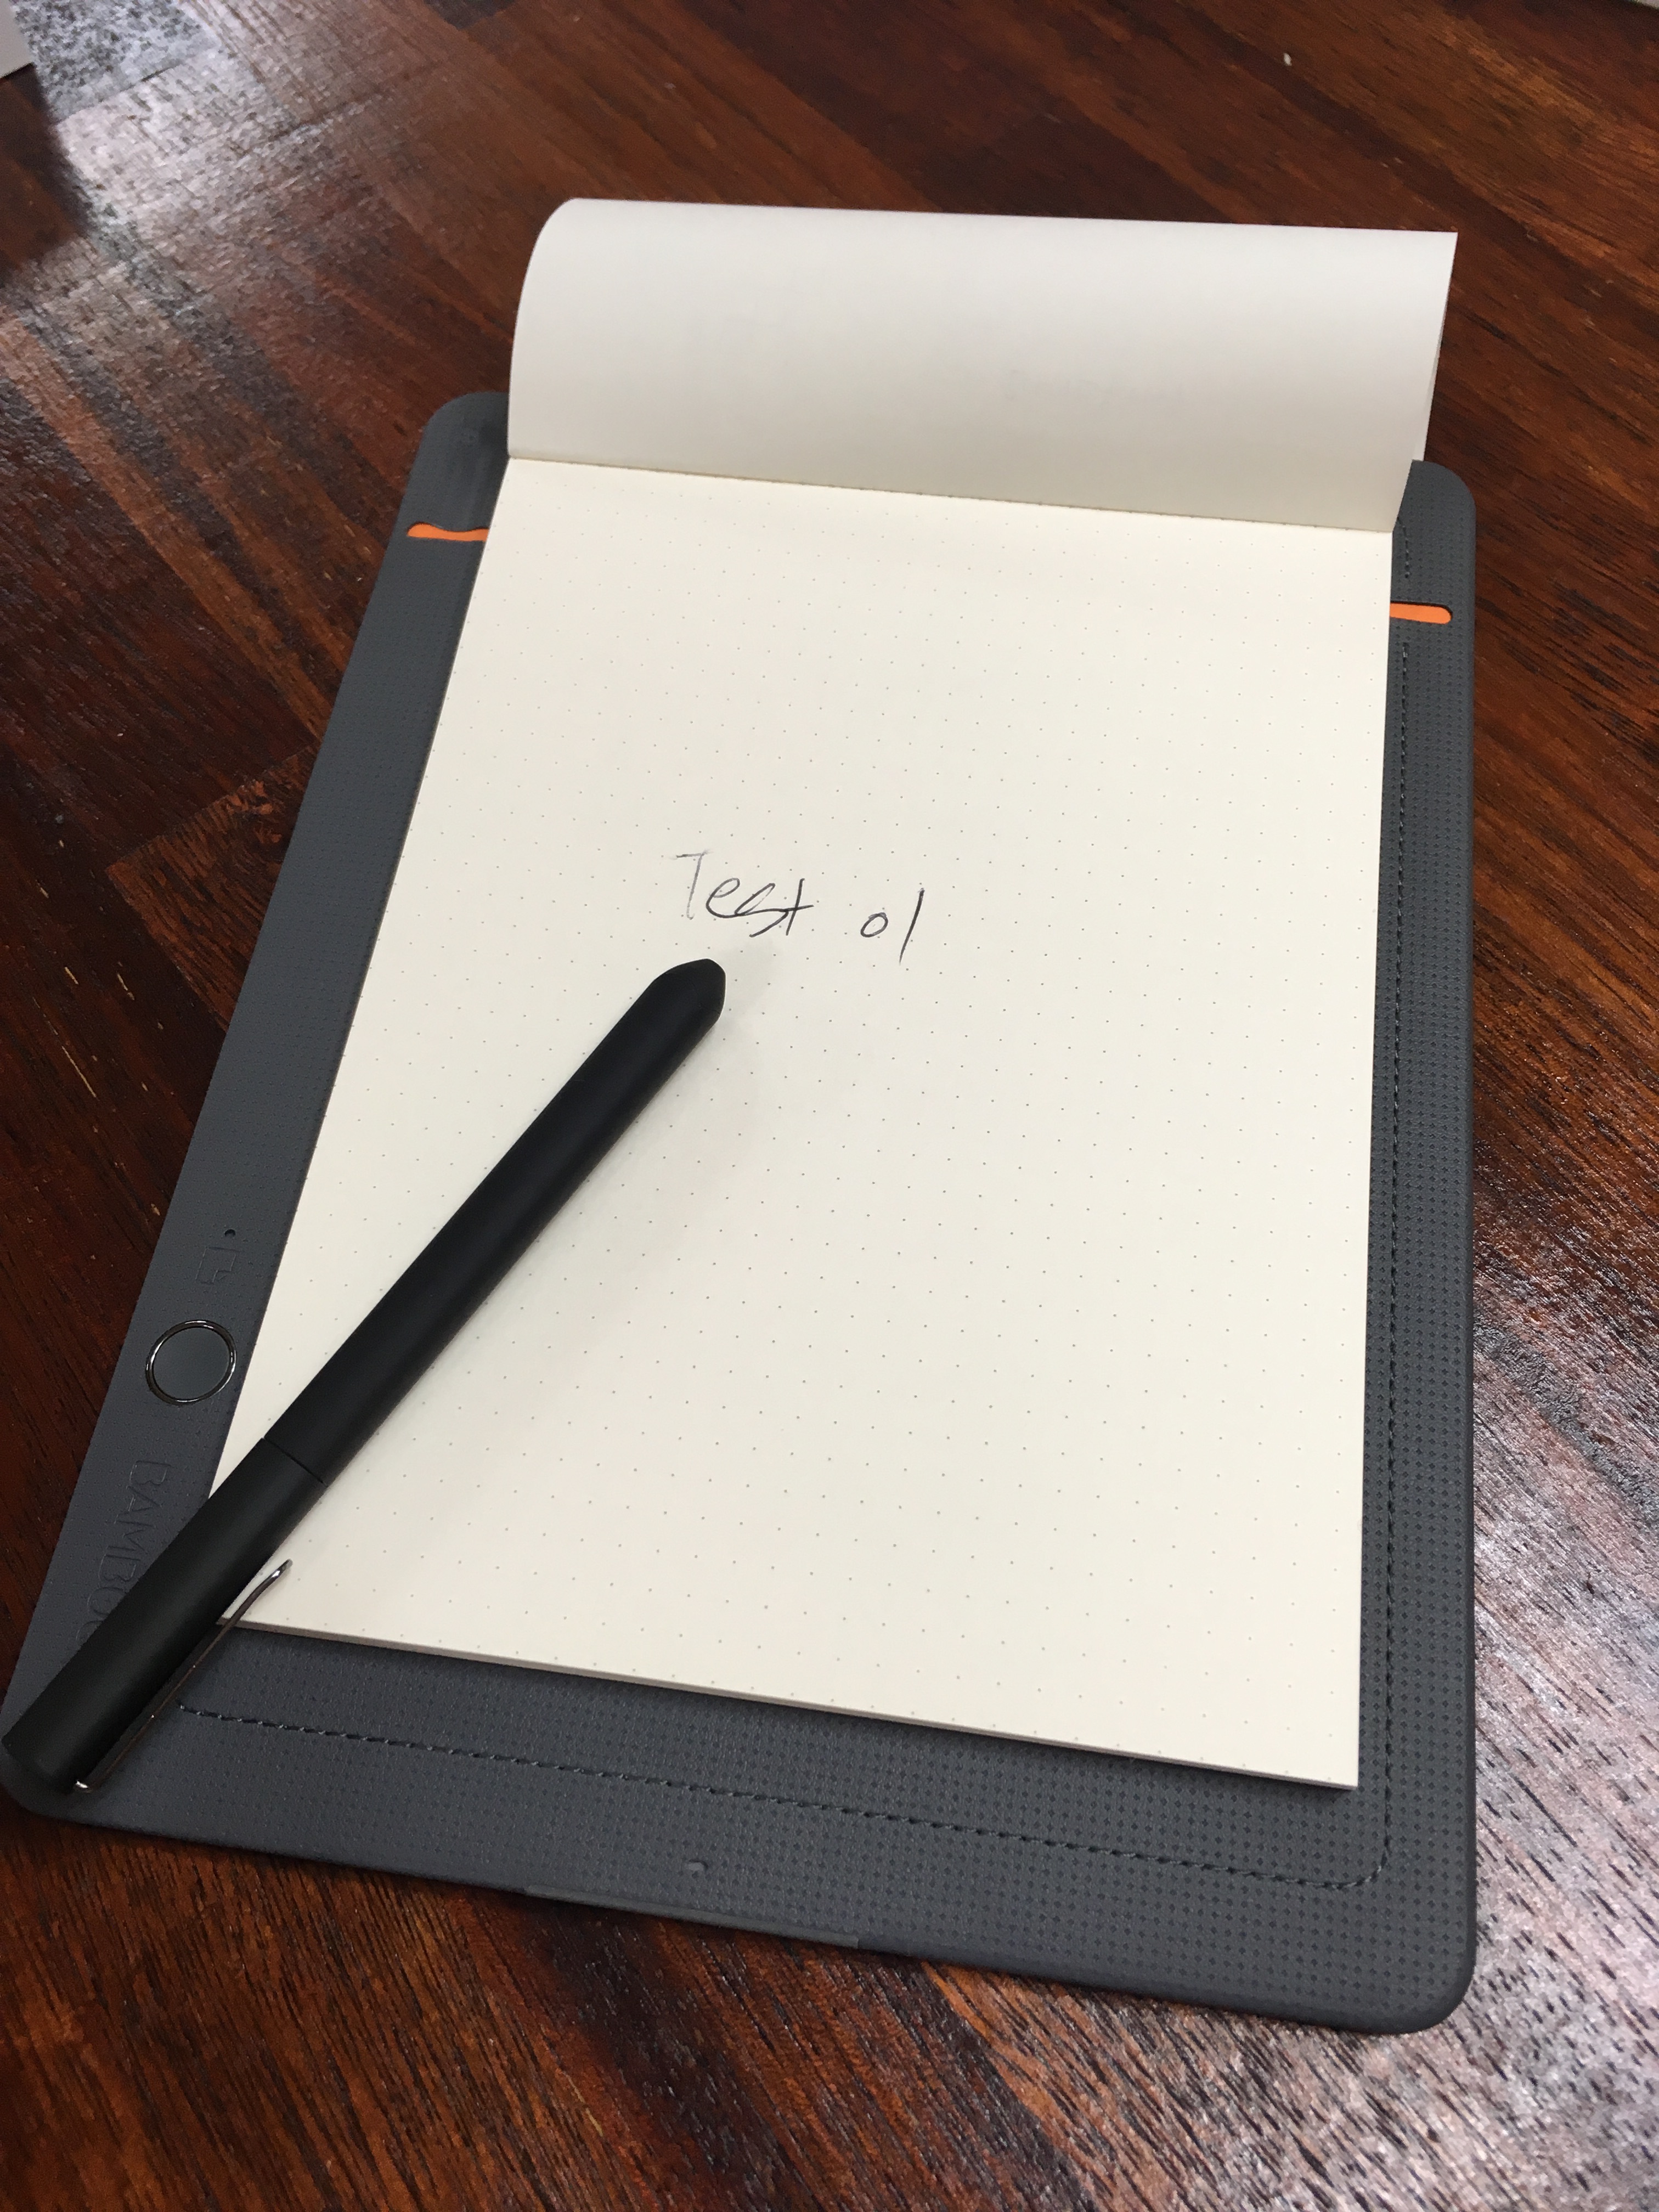 Test 01
BAMBOO